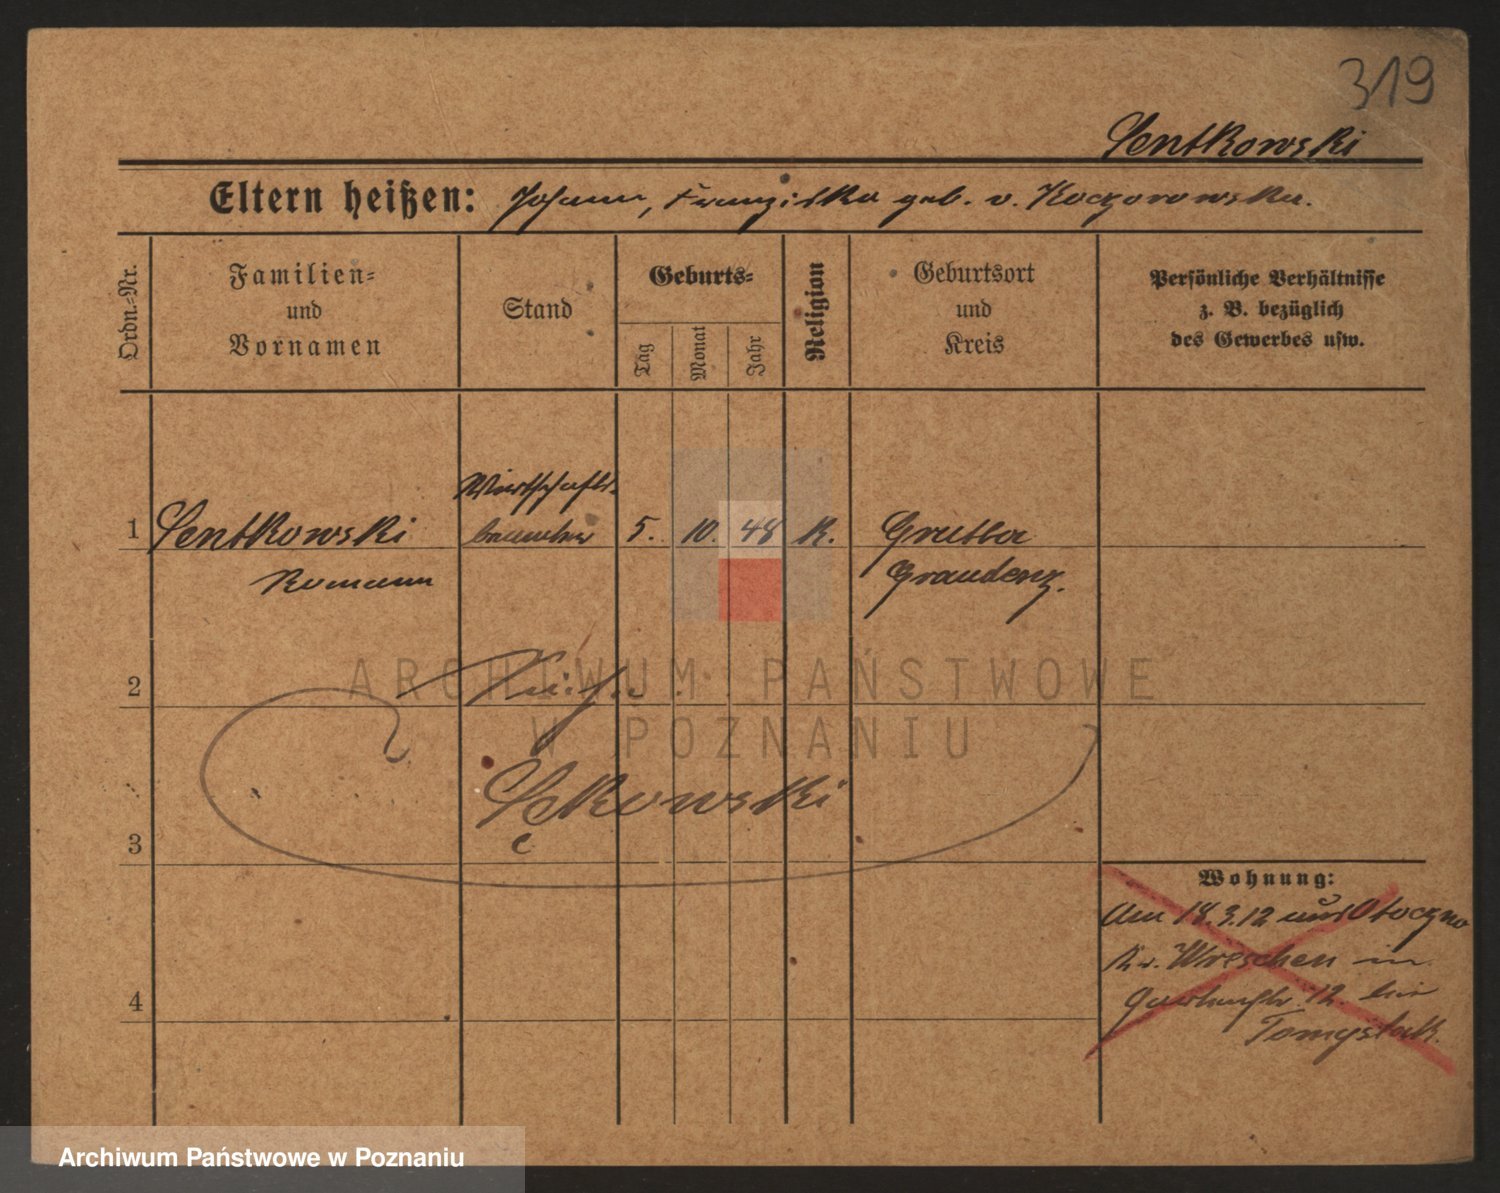 319
Sentkowski
Eltern heißen: Johann, Franziska geb. v. Koczorowska.
Ordn.-Nr.
Familien- und Vornamen
Stand
Geburts-
Tag
Monat
Jahr
Religion
Geburtsort und Kreis
Persönliche Verhältnisse
z. B. bezüglich
des Gewerbes usw.
Wirtschafts-
1 Sentkowski beamter 5. 10. 48 K. Grutta
Romann Graudenz.
2
ARCHIWUM PAŃSTWOWE
W POZNANIU
Sękowski
3
Wohnung:
Am 18.3.12 aus Otoczno
Kr. Wreschen in
4 Gartenstr. 12. bei
Tomystak.
Archiwum Państwowe w Poznaniu